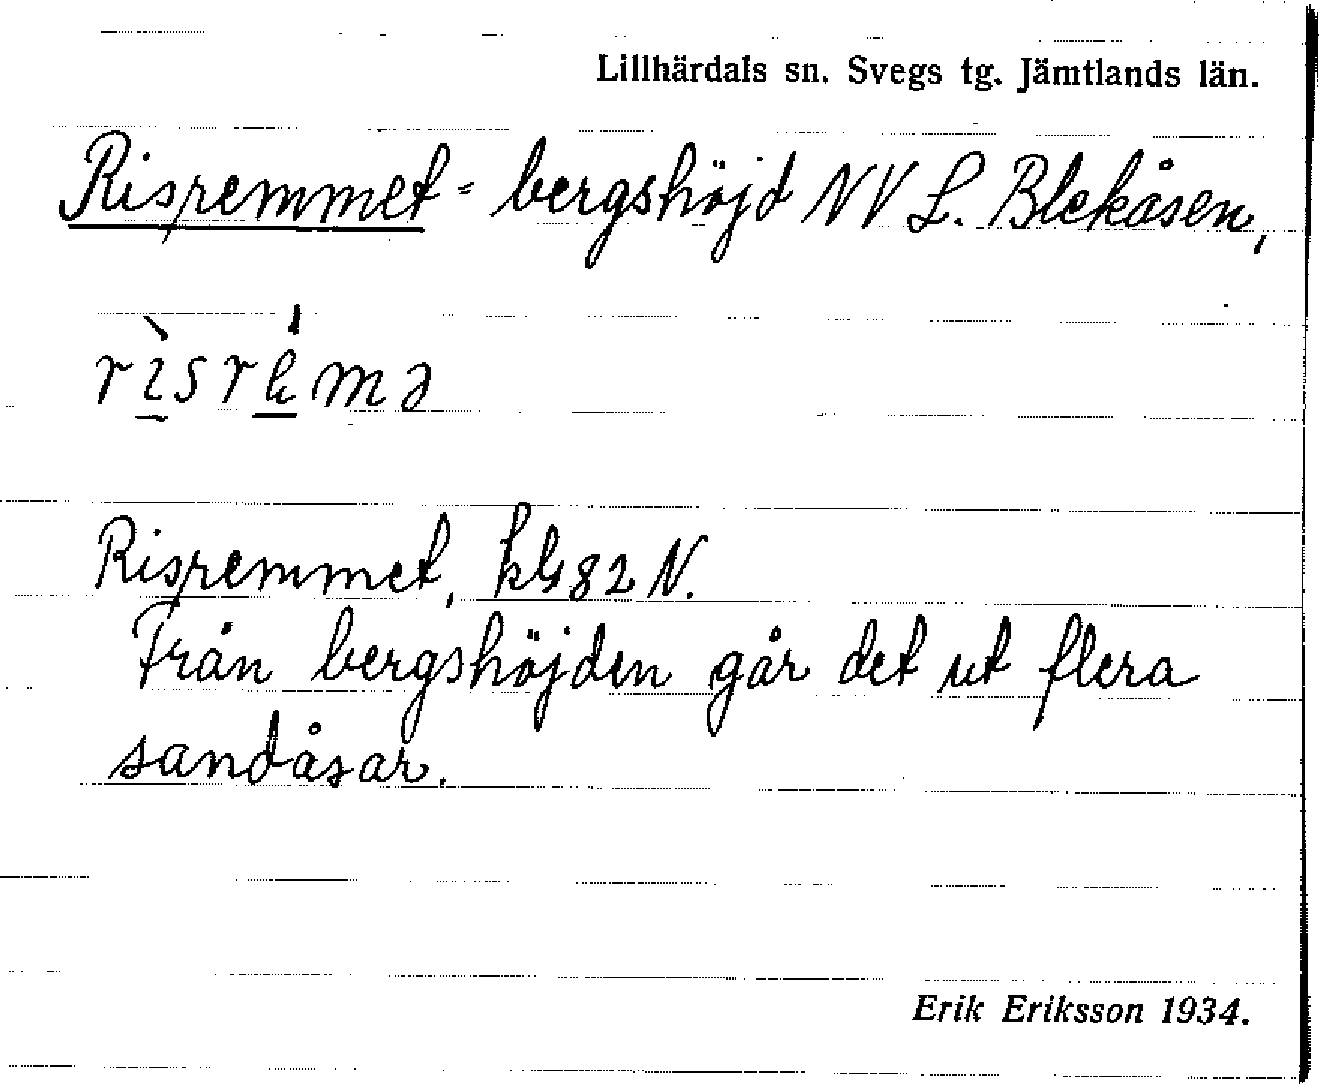 Lillhärdals sn. Svegs tg. Jämtlands län.
Risremmet = bergshöjd NV L. Blekåsen,
rìsrémə
Risremmet, kbl 82 N.
Från bergshöjden går det ut flera
sandåsar.
Erik Eriksson 1934.